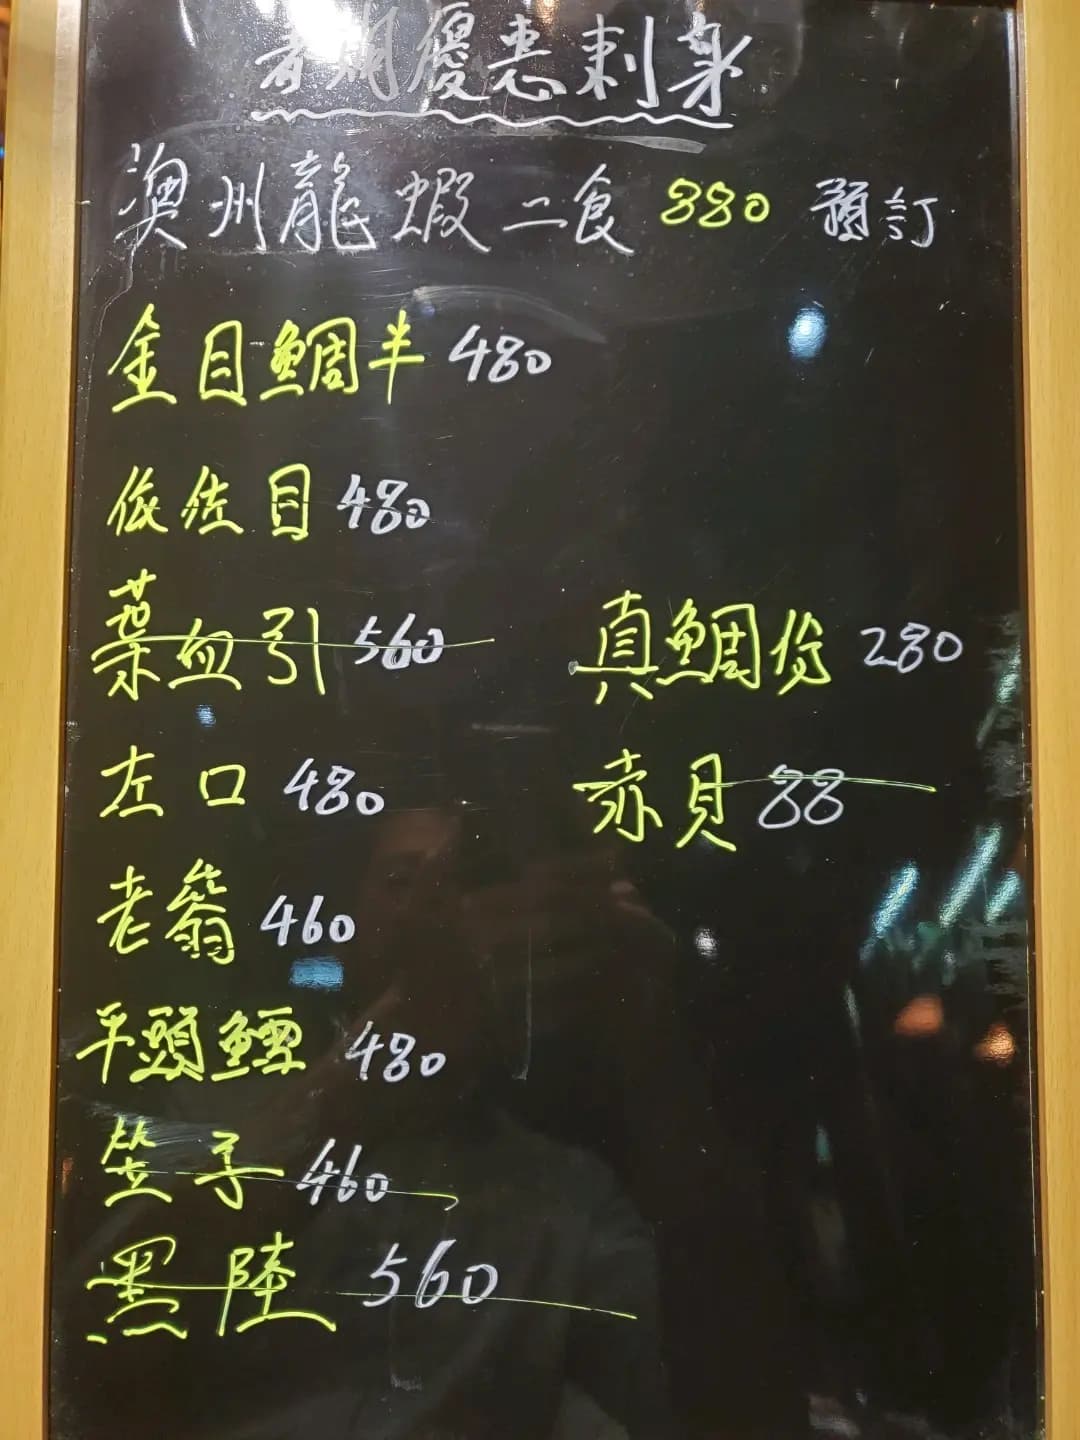 春期優惠刺身
澳州龍蝦二食 880 預訂
金目鯛半 480
依佐目 480
葉血引 560
真鯛份 280
左口 480
赤貝 88
老翁 460
平頭鱈 480
笠子 460
黑陸 560